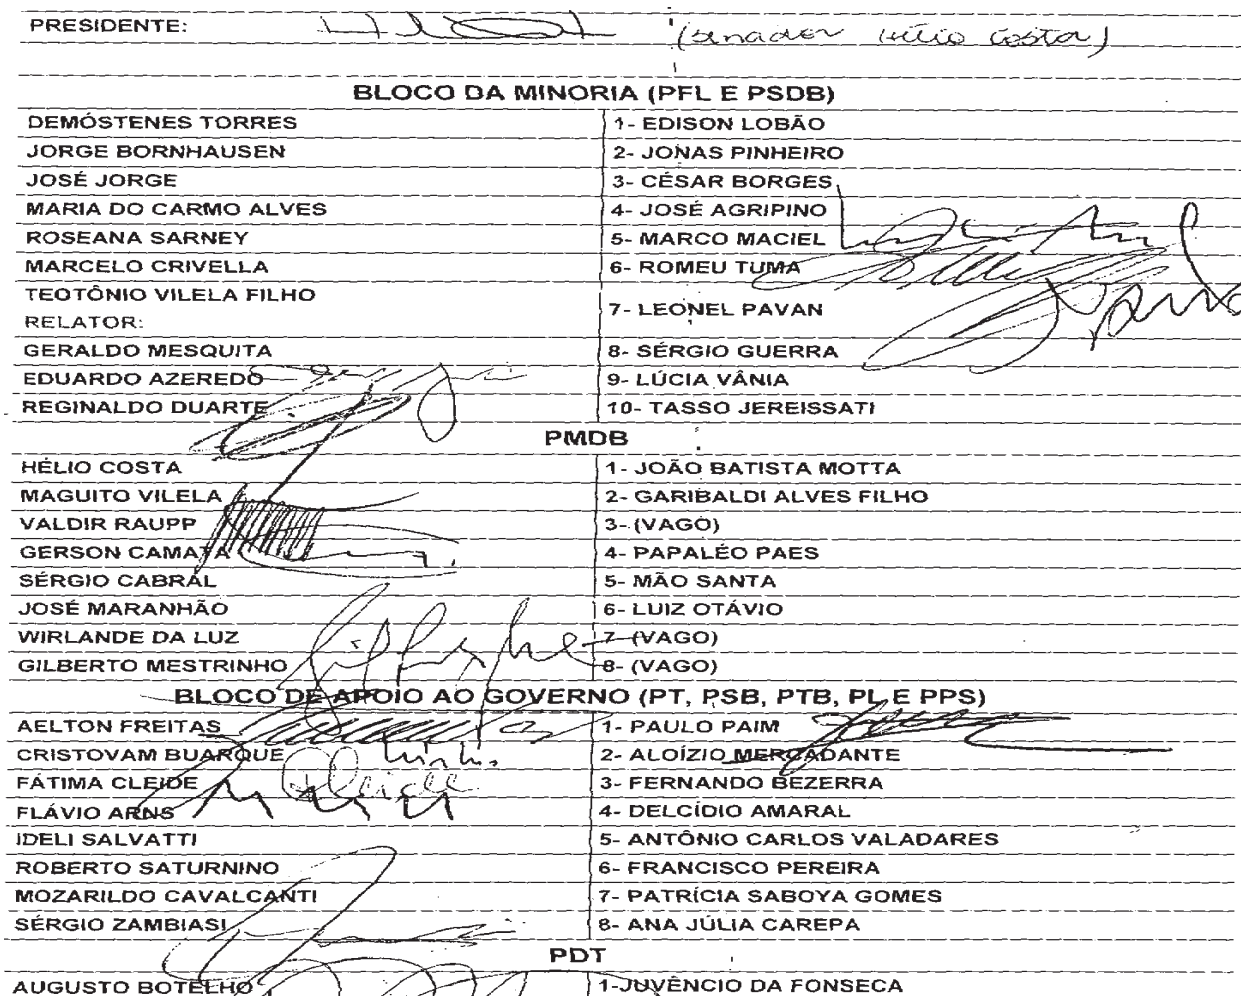 PRESIDENTE: (Senador Hélio Costa)
BLOCO DA MINORIA (PFL E PSDB)
DEMÓSTENES TORRES 1- EDISON LOBÃO
JORGE BORNHAUSEN 2- JONAS PINHEIRO
JOSÉ JORGE 3- CÉSAR BORGES
MARIA DO CARMO ALVES 4- JOSÉ AGRIPINO
ROSEANA SARNEY 5- MARCO MACIEL
MARCELO CRIVELLA 6- ROMEU TUMA
TEOTÔNIO VILELA FILHO
RELATOR: 7- LEONEL PAVAN
GERALDO MESQUITA 8- SÉRGIO GUERRA
EDUARDO AZEREDO 9- LÚCIA VÂNIA
REGINALDO DUARTE 10- TASSO JEREISSATI
PMDB
HÉLIO COSTA 1- JOÃO BATISTA MOTTA
MAGUITO VILELA 2- GARIBALDI ALVES FILHO
VALDIR RAUPP 3- (VAGO)
GERSON CAMATA 4- PAPALÉO PAES
SÉRGIO CABRAL 5- MÃO SANTA
JOSÉ MARANHÃO 6- LUIZ OTÁVIO
WIRLANDE DA LUZ 7- (VAGO)
GILBERTO MESTRINHO 8- (VAGO)
BLOCO DE APOIO AO GOVERNO (PT, PSB, PTB, PL E PPS)
AELTON FREITAS 1- PAULO PAIM
CRISTOVAM BUARQUE 2- ALOÍZIO MERCADANTE
FÁTIMA CLEIDE 3- FERNANDO BEZERRA
FLÁVIO ARNS 4- DELCÍDIO AMARAL
IDELI SALVATTI 5- ANTÔNIO CARLOS VALADARES
ROBERTO SATURNINO 6- FRANCISCO PEREIRA
MOZARILDO CAVALCANTI 7- PATRÍCIA SABOYA GOMES
SÉRGIO ZAMBIASI 8- ANA JÚLIA CAREPA
PDT
AUGUSTO BOTELHO 1-JUVÊNCIO DA FONSECA